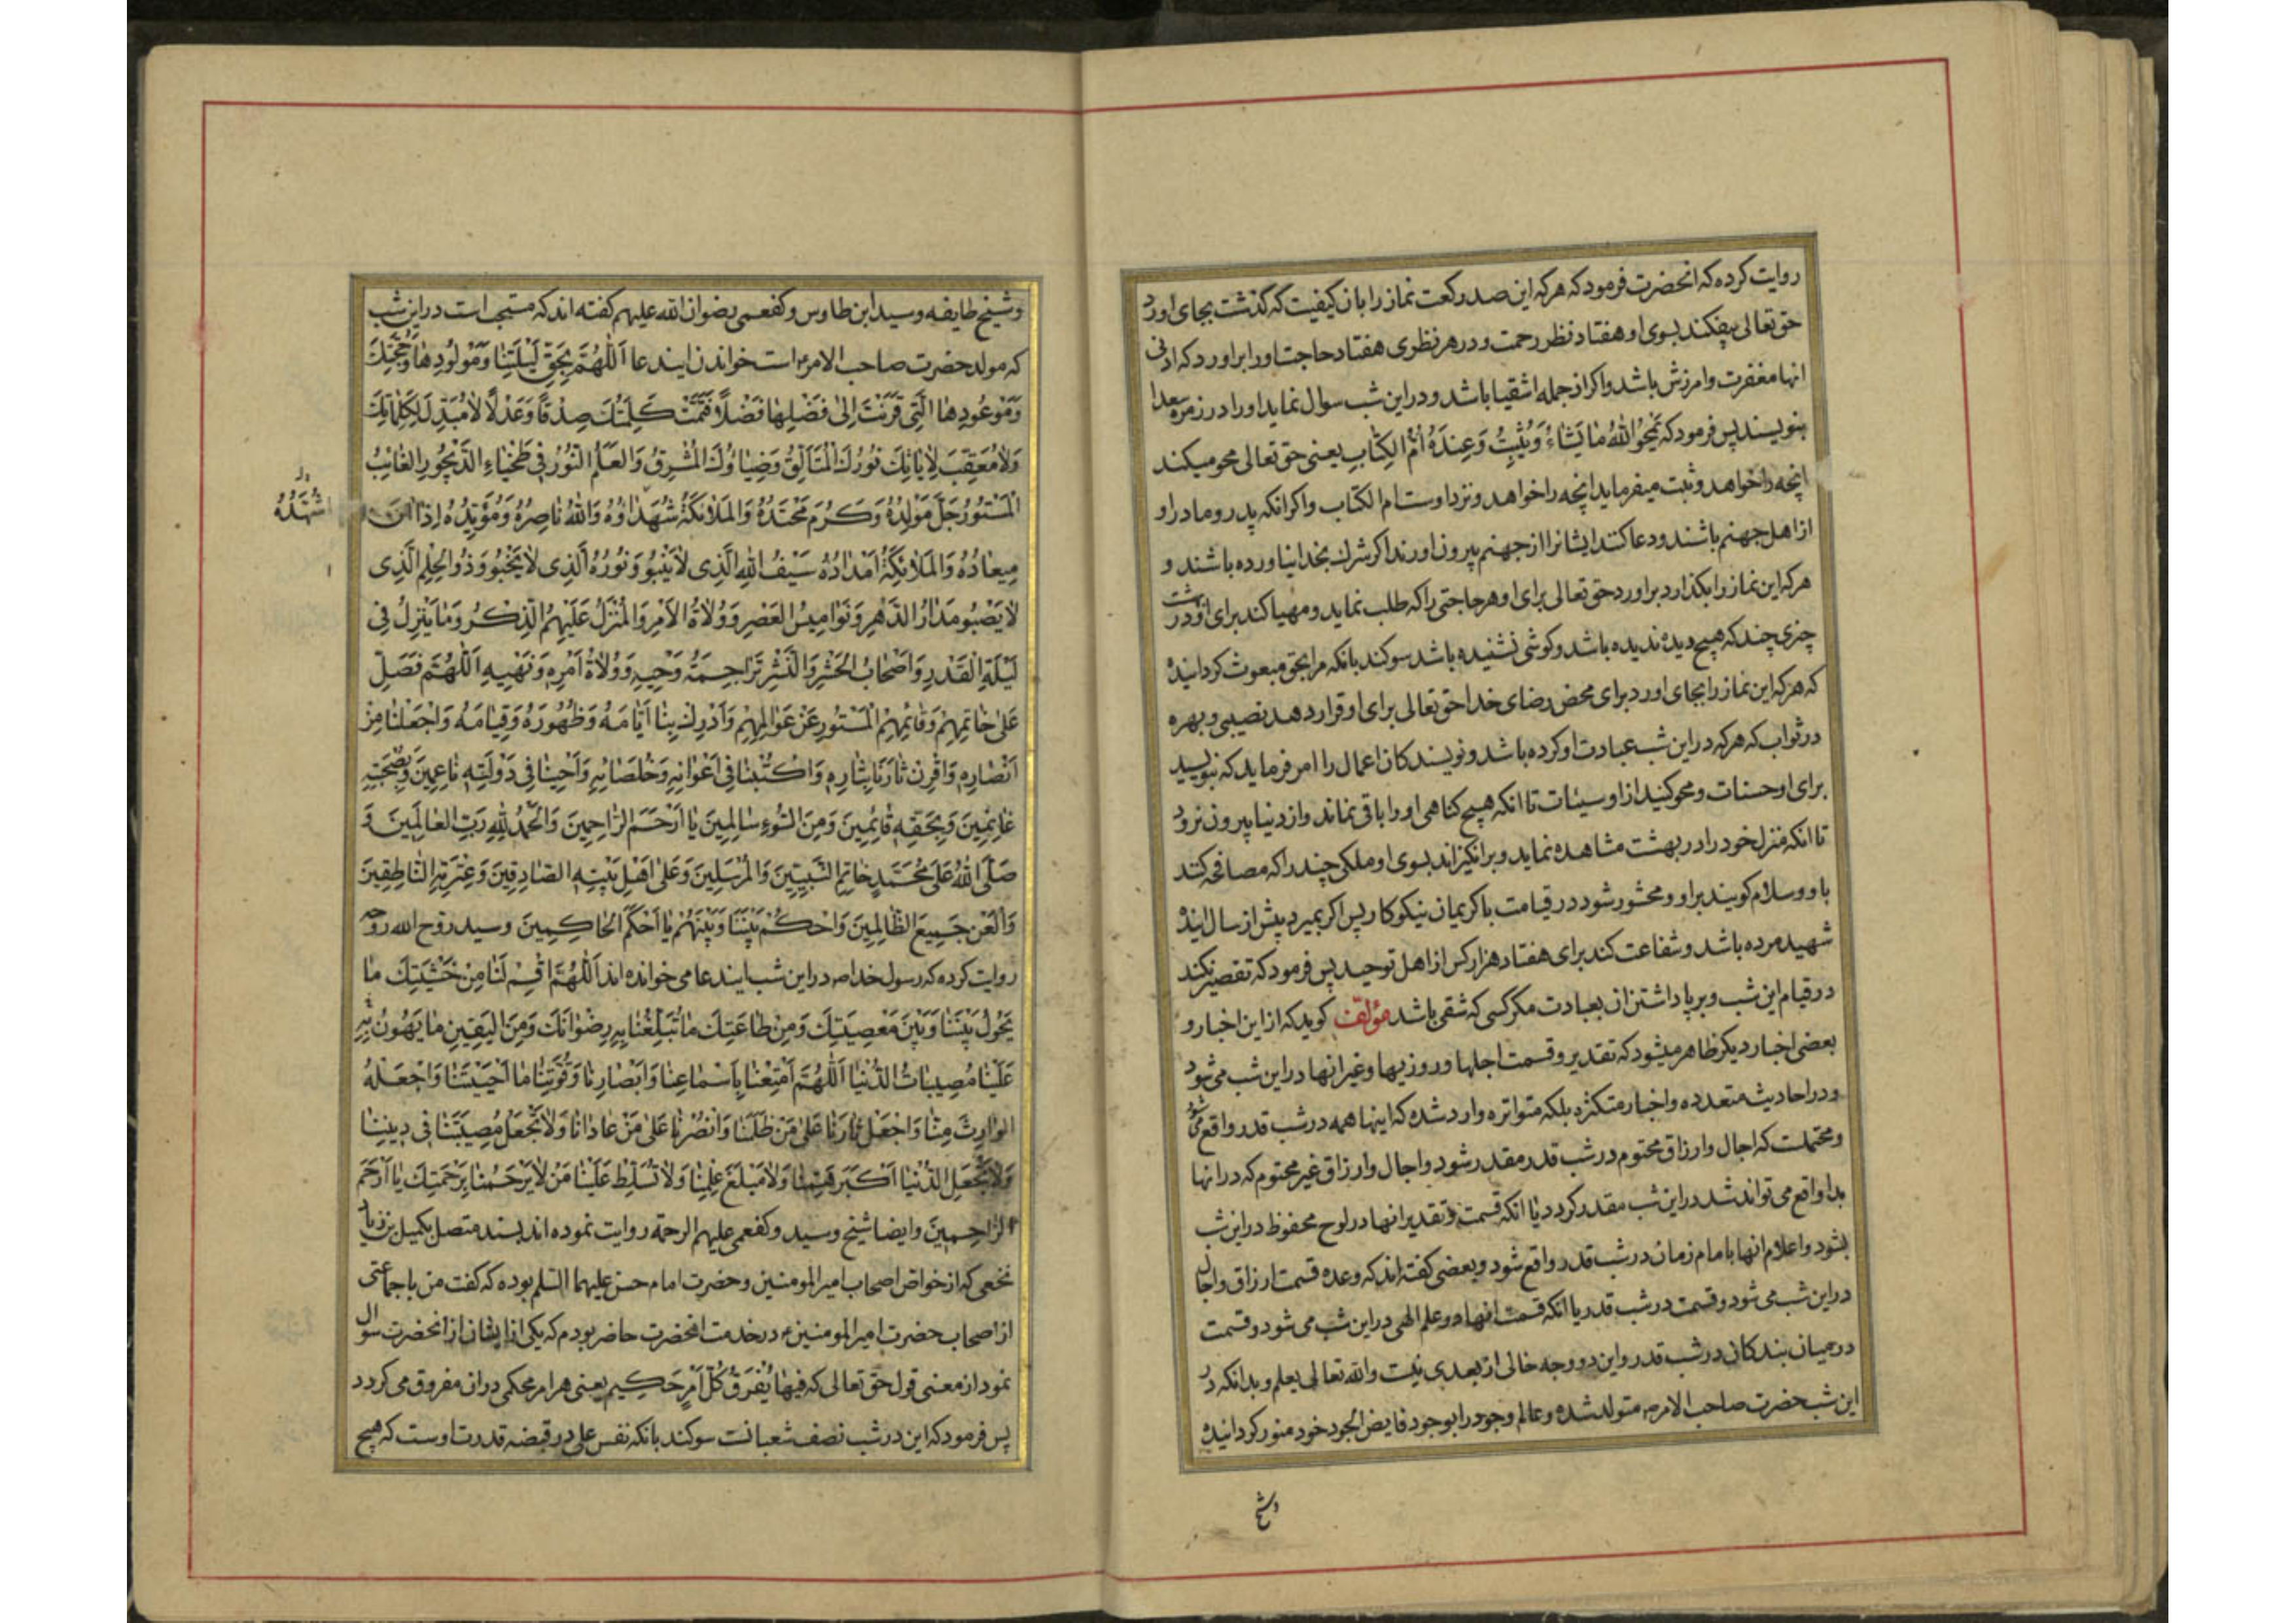 روایت کرده که انحضرت فرمود که هر که این صد رکعت نماز را بان کیفیت که گذشت بجای اورد
حق تعالی بیفکند بسوی او هفتاد نظر رحمت و در هر نظری هفتاد حاجت او را براورد که ادنی
انها مغفرت و امرزش باشد و اکر از جمله اشقیا باشد و در این شب سوال نماید او را در زمره سعدا
بنویسند پس فرمود که یَمْحُوا اللهُ مٰا یَشٰاءُ وَ یُثْبِتُ وَ عِنْدَهُ اُمُّ الْکِتٰابِ یعنی حق تعالی محو میکند
انچه را خواهد و ثبت میفرماید انچه را خواهد و نزد اوست ام الکتاب و اکر انکه پدر و مادر او
از اهل جهنم باشند و دعا کند ایشانرا از جهنم بیرون اورند اکر شرک بخدا نیاورده باشند و
هر که این نماز را بکذارد براورد حق تعالی برای او هر حاجتی را که طلب نماید و مهیا کند برای او در بهشت
چیزی چند که هیچ دیده ندیده باشد و کوشی نشنیده باشد سوکند بانکه مرا بحق مبعوث کردانیده
که هر که این نماز را بجای اورد برای محض رضای خدا حق تعالی برای او قرار دهد نصیبی و بهره
در ثواب که هر که در این شب عبادت او کرده باشد و نویسندکان اعمال را امر فرماید که بنویسید
برای او حسنات و محو کنید از او سیئات تا انکه هیچ کناهی او را باقی نماند و از دنیا بیرون نرود
تا انکه منزل خود را در بهشت مشاهده نماید و برانکیزاند بسوی او ملکی چند را که مصافحه کنند
با او و سلام کویند بر او و محشور شود در قیامت با کریمان نیکوکار پس اکر بمیرد پیش از سال اینده
شهید مرده باشد و شفاعت کند برای هفتاد هزار کس از اهل توحید پس فرمود که تقصیر نکند
در قیام این شب و برپا داشتن ان بعبادت مکر کسی که شقی باشد مؤلف کوید که از این اخبار و
بعضی اخبار دیکر ظاهر میشود که تقدیر و قسمت اجلها و روزیها و غیر انها در این شب می شود
و در احادیث متعدده و اخبار متکثره بلکه متواتره وارد شده که اینها همه در شب قدر واقع می شود
و محتملست که اجال و ارزاق محتوم در شب قدر مقدر شود و اجال و ارزاق غیر محتوم که در انها
بدا واقع می تواند شد در این شب مقدر کردد یا انکه قسمت و تقدیر انها در لوح محفوظ در این شب
بشود و اعلام انها بامام زمان در شب قدر واقع شود و بعضی کفته اند که وعده قسمت ارزاق و اجال
در این شب می شود و قسمت در شب قدر یا انکه قسمت انها در علم الهی در این شب می شود و قسمت
در میان بندکان در شب قدر و این دو وجه خالی از بعدی نیست و الله تعالی یعلم و بدانکه در
این شب حضرت صاحب الامر متولد شده و عالم وجود را بوجود فایض الجود خود منور کردانیده
وشیخ
وشیخ طایفه و سید ابن طاوس و کفعمی رضوان الله علیهم کفته اند که مستحب است در این شب
که مولد حضرت صاحب الامر است خواندن ایندعا اَللّٰهُمَّ بِحَقِّ لَیْلَتِنٰا وَ مَوْلُودِهٰا وَ حُجَّتِکَ
وَ مَوْعُودِهٰا الَّتِی قَرَنْتَ اِلیٰ فَضْلِهٰا فَضْلاً فَتَمَّتْ کَلِمَتُکَ صِدْقًا وَ عَدْلاً لاٰ مُبَدِّلَ لِکَلِمٰاتِکَ
وَلاٰ مُعَقِّبَ لِاٰیٰاتِکَ نُورُکَ الْمُتَاَلِّقُ وَ ضِیٰاؤُکَ الْمُشْرِقُ وَ الْعَلَمُ النُّورُ فِی طَخْیٰاءِ الدَّیْجُورِ الْغٰائِبُ
الْمَسْتُورُ جَلَّ مَوْلِدُهُ وَ کَرُمَ مَحْتِدُهُ وَ الْمَلاٰئِکَةُ شُهَدٰاؤُهُ وَ اللهُ نٰاصِرُهُ وَ مُؤَیِّدُهُ اِذٰا اٰنَ
مِیعٰادُهُ وَ الْمَلاٰئِکَةُ اَمْدٰادُهُ سَیْفُ اللهِ الَّذِی لاٰ یَنْبُو وَ نُورُهُ الَّذِی لاٰ یَخْبُو وَ ذُو الْحِلْمِ الَّذِی
لاٰ یَصْبُو مَدٰارُ الدَّهْرِ وَ نَوٰامِیسُ الْعَصْرِ وَ وُلاٰةُ الْاَمْرِ وَ الْمُنَزَّلُ عَلَیْهِمُ الذِّکْرُ وَ مٰا یَنْزِلُ فِی
لَیْلَةِ الْقَدْرِ وَ اَصْحٰابُ الْحَشْرِ وَ النَّشْرِ تَرٰاجِمَةُ وَحْیِهِ وَ وُلاٰةُ اَمْرِهِ وَ نَهْیِهِ اَللّٰهُمَّ فَصَلِّ
عَلیٰ خٰاتِمِهِمْ وَ قٰائِمِهِمُ الْمَسْتُورِ عَنْ عَوٰالِمِهِمْ وَ اَدْرِکْ بِنٰا اَیّٰامَهُ وَ ظُهُورَهُ وَ قِیٰامَهُ وَ اجْعَلْنٰا مِنْ
اَنْصٰارِهِ وَ اقْرِنْ ثٰارَنٰا بِثٰارِهِ وَ اکْتُبْنٰا فِی اَعْوٰانِهِ وَ خُلَصٰائِهِ وَ اَحْیِنٰا فِی دَوْلَتِهِ نٰاعِمِینَ وَ بِصُحْبَتِهِ
غٰانِمِینَ وَ بِحَقِّهِ قٰائِمِینَ وَ مِنَ السُّوءِ سٰالِمِینَ یٰا اَرْحَمَ الرّٰاحِمِینَ وَ الْحَمْدُ لِلهِ رَبِّ الْعٰالَمِینَ وَ
صَلَّی اللهُ عَلیٰ مُحَمَّدٍ خٰاتِمِ النَّبِیِّینَ وَ الْمُرْسَلِینَ وَ عَلیٰ اَهْلِ بَیْتِهِ الصّٰادِقِینَ وَ عِتْرَتِهِ النّٰاطِقِینَ
وَ الْعَنْ جَمِیعَ الظّٰالِمِینَ وَ احْکُمْ بَیْنَنٰا وَ بَیْنَهُمْ یٰا اَحْکَمَ الْحٰاکِمِینَ و سید روح الله روحه
روایت کرده که رسول خدا ص در این شب ایندعا می خوانده اند اَللّٰهُمَّ اقْسِمْ لَنٰا مِنْ خَشْیَتِکَ مٰا
یَحُولُ بَیْنَنٰا وَ بَیْنَ مَعْصِیَتِکَ وَ مِنْ طٰاعَتِکَ مٰا تُبَلِّغُنٰا بِهِ رِضْوٰانَکَ وَ مِنَ الْیَقِینِ مٰا یَهُونُ بِهِ
عَلَیْنٰا مُصِیبٰاتُ الدُّنْیٰا اَللّٰهُمَّ اَمْتِعْنٰا بِاَسْمٰاعِنٰا وَ اَبْصٰارِنٰا وَ قُوَّتِنٰا مٰا اَحْیَیْتَنٰا وَ اجْعَلْهُ
الْوٰارِثَ مِنّٰا وَ اجْعَلْ ثٰارَنٰا عَلیٰ مَنْ ظَلَمَنٰا وَ انْصُرْنٰا عَلیٰ مَنْ عٰادٰانٰا وَلاٰ تَجْعَلْ مُصِیبَتَنٰا فِی دِینِنٰا
وَلاٰ تَجْعَلِ الدُّنْیٰا اَکْبَرَ هَمِّنٰا وَلاٰ مَبْلَغَ عِلْمِنٰا وَلاٰ تُسَلِّطْ عَلَیْنٰا مَنْ لاٰ یَرْحَمُنٰا بِرَحْمَتِکَ یٰا اَرْحَمَ
الرّٰاحِمِینَ و ایضا شیخ و سید و کفعمی علیهم الرحمة روایت نموده اند بسند متصل بکمیل بن زیاد
نخعی که از خواص اصحاب امیر المومنین و حضرت امام حسن علیهما السلم بوده که کفت من با جماعتی
از اصحاب حضرت امیر المومنین ع در خدمت انحضرت حاضر بودم که یکی از ایشان از انحضرت سوال
نمود از معنی قول حق تعالی که فِیهٰا یُفْرَقُ کُلُّ اَمْرٍ حَکِیمٍ یعنی هر امر محکمی در ان مفروق می کردد
پس فرمود که این در شب نصف شعبانست سوکند بانکه نفس علی در قبضه قدرت اوست که هیچ